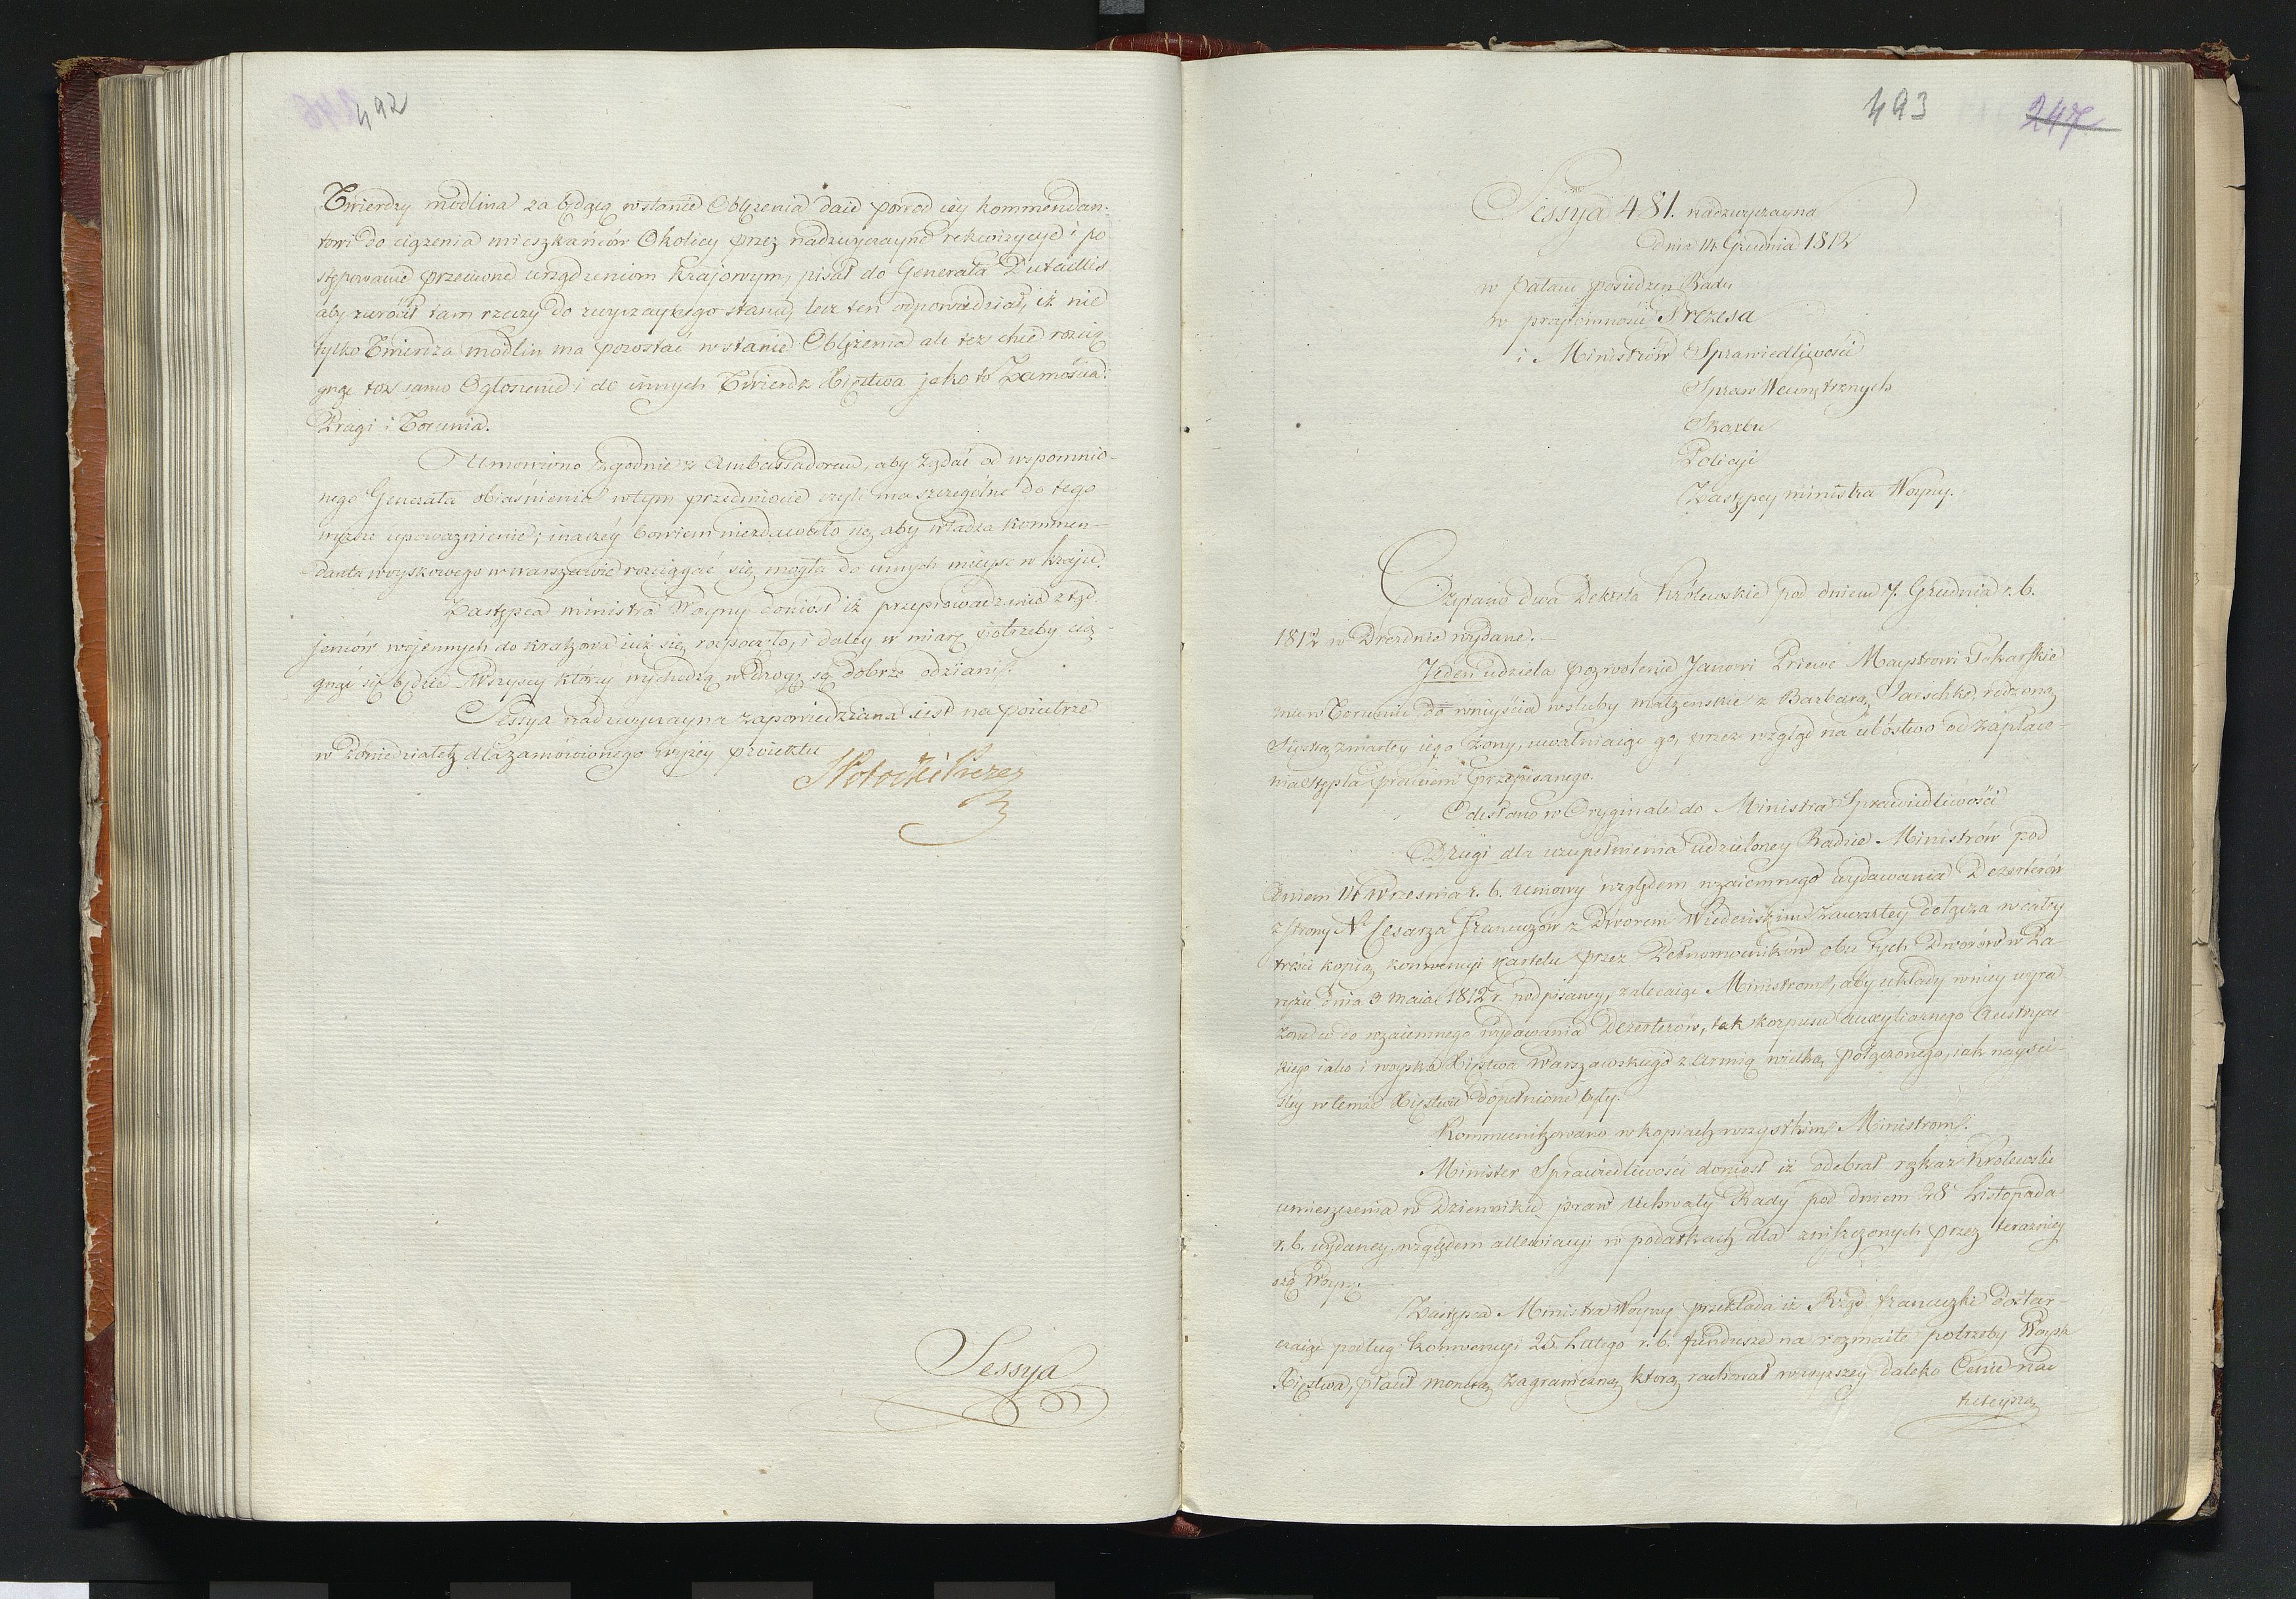 492
Twierdzy modlina za będącą w stanie Oblężenia daie powod iey kommendan-
towi do ciążenia mieszkańców Okolicy przez nadzwyczayne rekwizycye i po
stępowanie przeciwne urządzeniom krajowym, pisał do Generała Dutaillis
aby zwrócił tam rzeczy do zwyczaynego stanu, lecz ten odpowiedział, iż nie
tylko Twierdza modlin ma pozostać w stanie Oblężenia ale też chce rozcią
gnąć toż samo Ogłoszenie i do innych Twierdz Xięstwa jako to Zamościa
Pragi i Torunia.
Umowiono zgodnie z Ambassadorem, aby żądać od wspomnio-
nego Generała obiaśnienia w tym przedmiocie czyli ma szczególne do tego
wyższe upoważnienie; inaczéy bowiem niezdawało się, aby władza kommen-
danta woyskowego w warszawie rozciągać się mogła do innych mieysc w kraju.
Zastępca ministra Woyny doniósł iż przeprowadzanie ztąd
jenców wojennych do krakowa już się rozpoczęło, i daley w miarę potrzeby cią-
gnąć się będzie. Wszyscy którzy wychodzą w Drogę są dobrze odziani.
Sessya nadzwyczayna zapowiedziana iest na poiutrze
w Poniedziałek dla zamówionego wyżey proiektu
S Potocki Prezes
Sessya
493
247
Sessya 481. nadzwyczayna
Dnia 14 Grudnia 1812
w Pałacu posiedzeń Rady
w przytomności Prezesa
i Ministrów Sprawiedliwości
Spraw Wewnętrznych
Skarbu
Policyi
Zastępcy ministra Woyny.
Czytano dwa Dekreta Królewskie pod dniem 7. Grudnia r. b.
1812 w Dreźnie wydane.—
Jeden udziela pozwolenie Janowi Priewe Maystrowi Tokarskie
mu w Toruniu do wniyścia w śluby małżenskie z Barbarą Jaeschke rodzoną
Siostrą zmarłey iego żony, uwalniaiąc go, przez wzgląd na ubóstwo od zapłace-
nia Stępla prawem przepisanego.
Odesłano w Oryginale do Ministra Sprawiedliwości
Drugi dla uzupełnienia udzieloney Radzie Ministrów pod
dniem 14 Wrzesnia r. b. umowy względem wzaiemnego wydawania Dezerterów
z strony N. Cesarza Francuzów z Dworem Wiedeńskim zawartey dołącza w całey
treści kopią konwencyi kartelu przez Pełnomocników obu tych Dworów w Pa
ryżu dnia 3 maia 1812 r. podpisaney, zalecaiąc Ministrom, aby układy w niey wyra
żone co do wzaiemnego wydawania Dezerterów, tak korpusu auxyliarnego Austryac
kiego iako i woyska Xięstwa Warszawskiego z Armią wielką połączonego, iak nayści-
śley w temże Xięstwie dopełnione były.
Kommunikowano w kopiach wszystkim Ministrom.
Minister Sprawiedliwości doniosł iż odebrał rozkaz Królewski
umieszczenia w Dzienniku praw Uchwały Rady pod dniem 28 Listopada
r. b. wydaney, względem allewiacyi w podatkach dla zniszczonych przez teraźniey
szą Woynę.
Zastępca Ministra Woyny przekłada iż Rząd francuzki dostar-
czaiąc podług konwencyi 25. Lutego r. b. fundusze na rozmaite potrzeby Woysk
Xięstwa, płacił monetą zagraniczną którą rachował w wyższey daleko Cenie nad
tuteyszą